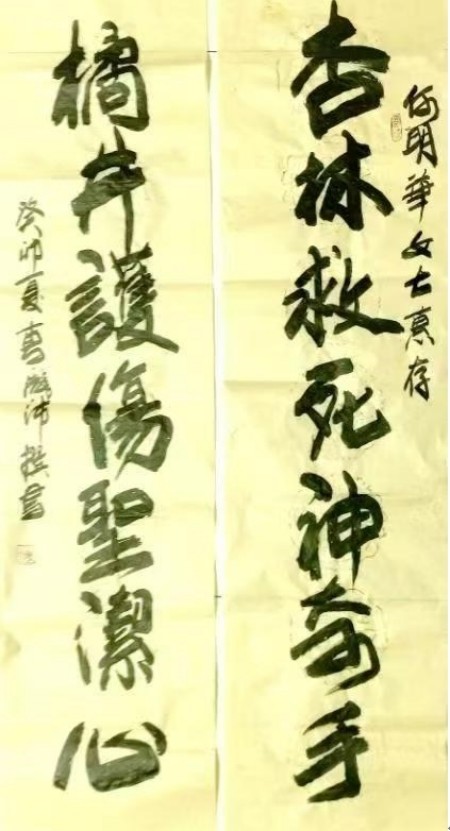 何明華女士惠存
杏林救死神奇手
橘井護傷聖潔心
癸卯夏沛撰書